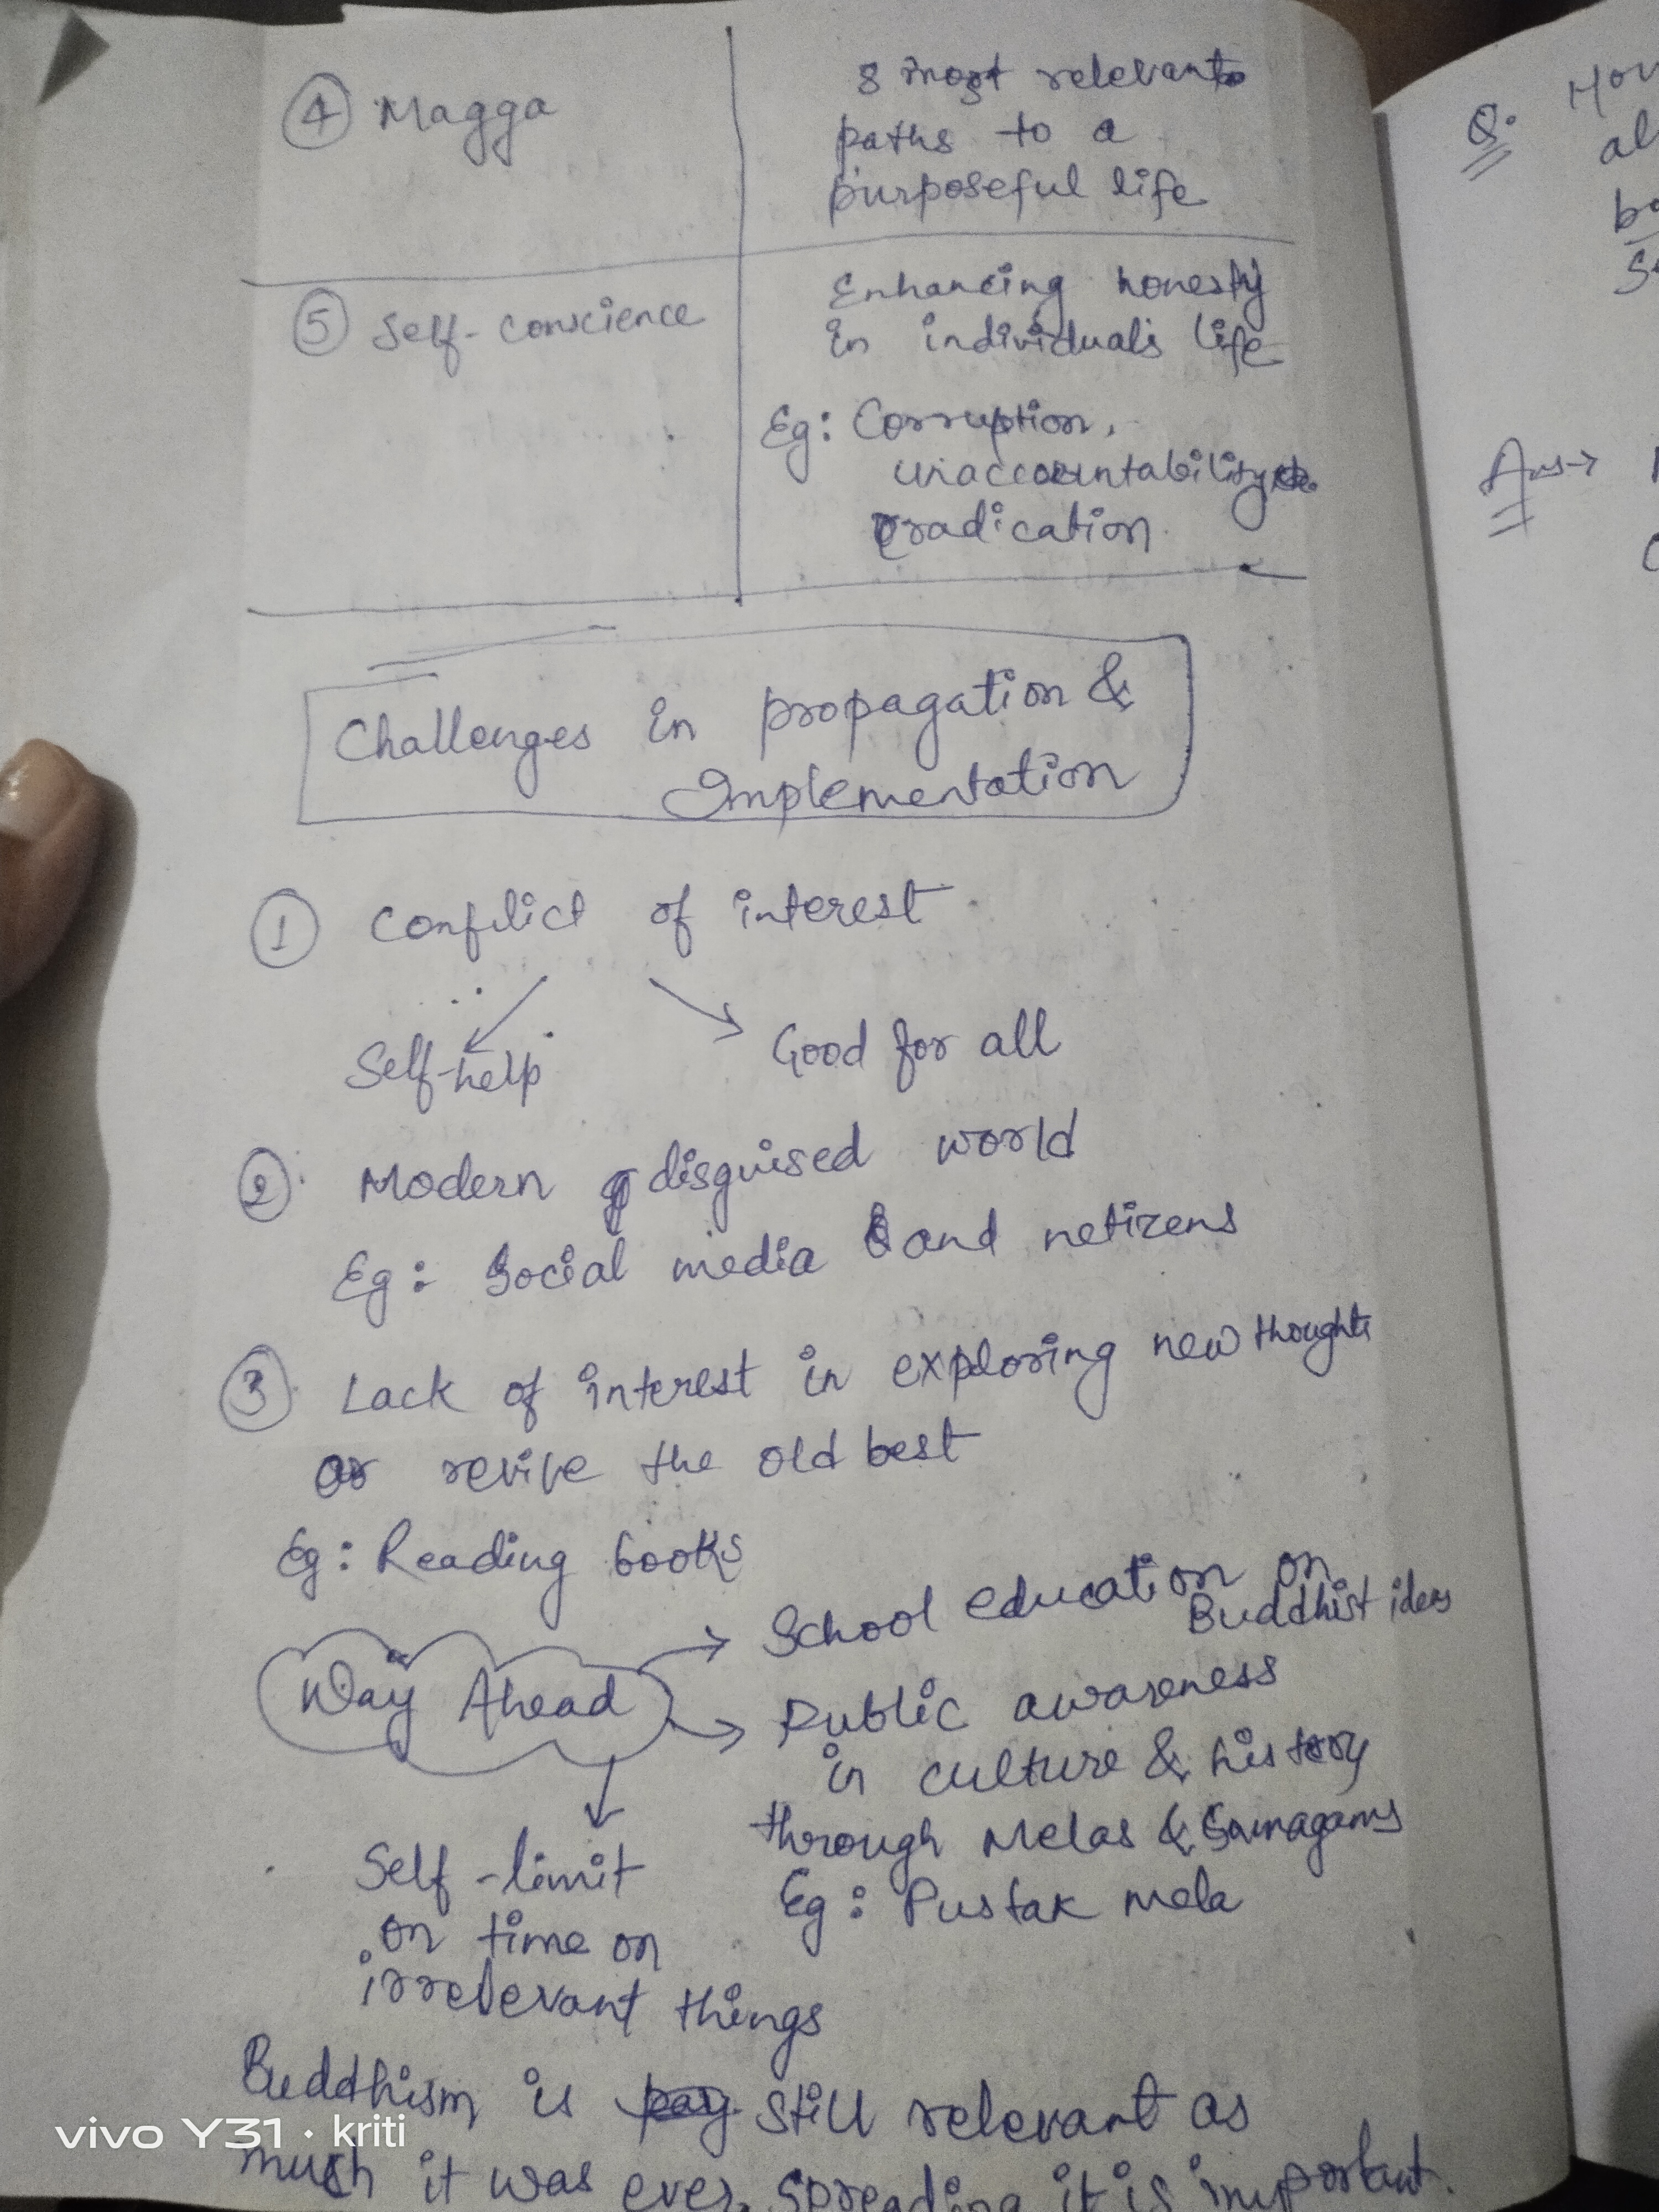 ④ Magga
8 most relevant
paths to a
purposeful life
⑤ Self-conscience
Enhancing honesty
in individual's life
Eg: Corruption,
unaccountability
eradication.
Challenges in propagation &
Implementation
① Conflict of interest
Self-help
Good for all
② Modern disguised world
Eg: Social media and netizens
③ Lack of interest in exploring new thoughts
or revive the old best
Eg: Reading books
Way Ahead
School education on
Buddhist ideas
Public awareness
in culture & history
through Melas & Samagams
Eg: Pustak mela
Self-limit
on time on
irrelevant things
Buddhism is still relevant as
much it was ever. Spreading it is important.
Q. How
al
Ans→
vivo Y31 · kriti